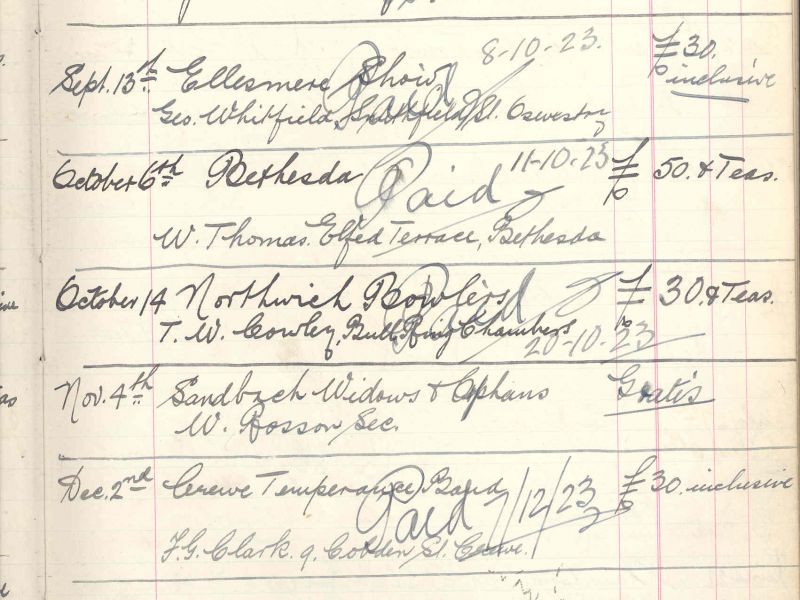 8-10-23.
Sept. 13th Ellesmere Show Paid £30. inclusive
Geo. Whitfield, Smithfield St. Oswestry
October 6th Bethesda Paid 11-10-23 £50. & Teas.
W. Thomas. Elfed Terrace, Bethesda
October 14 Northwich Bowlers Paid £30. & Teas.
T. W. Cowley, Bull Ring Chambers
20-10-23
Nov. 4th Sandbach Widows & Ophans Gratis
W. Rosson Sec.
Dec. 2nd Crewe Temperance Band Paid 7/12/23 £30. inclusive
F. G. Clark. 9. Cobden St. Crewe.